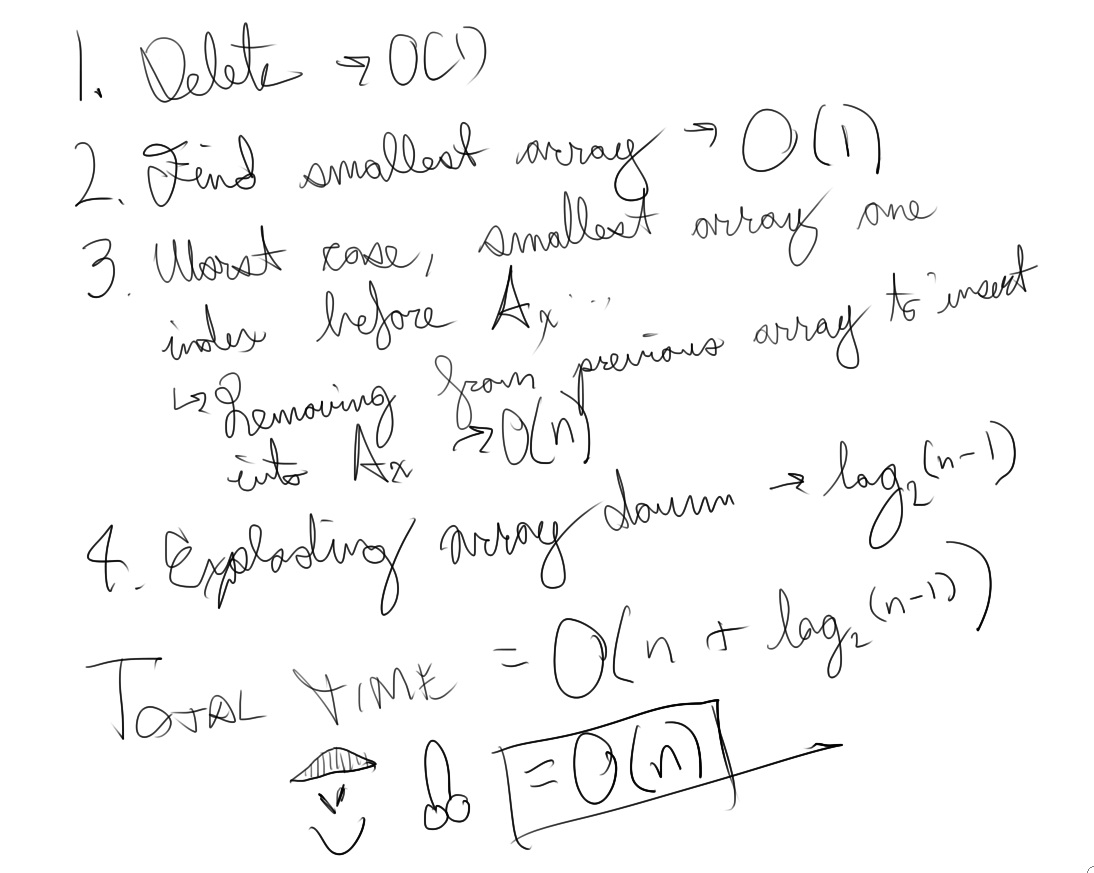 1. Delete → O(1)
2. Find smallest array → O(1)
3. Worst case, smallest array one
index before Aₓ...
↳ Removing from previous array to insert
into Aₓ → O(n)
4. Exploding array down → log₂(n-1)
TOTAL TIME = O(n + log₂(n-1))
= O(n)